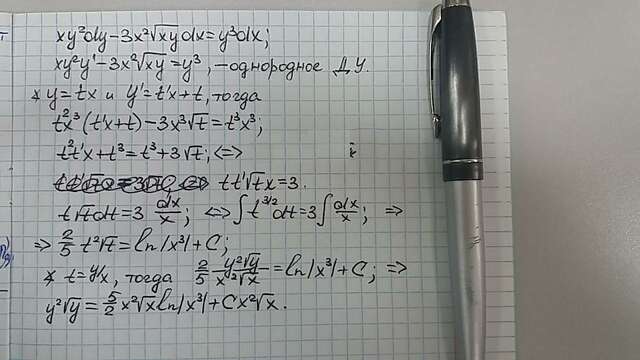 xy²dy-3x²√xy dx=y³dx;
xy²y'-3x²√xy=y³, -однородное ДУ.
y=tx и y'=t'x+t, тогда
t²x³(t'x+t)-3x³√t=t³x³;
t²t'x+t³=t³+3√t; <=>
tt'√t x=3.
t√t dt=3 dx/x; <=> ∫t^(3/2)dt=3∫dx/x; =>
=> 2/5 t²√t=ln|x³|+C;
t=y/x, тогда 2/5 y²√y/x²√x=ln|x³|+C; =>
y²√y=5/2 x²√x ln|x³|+Cx²√x.